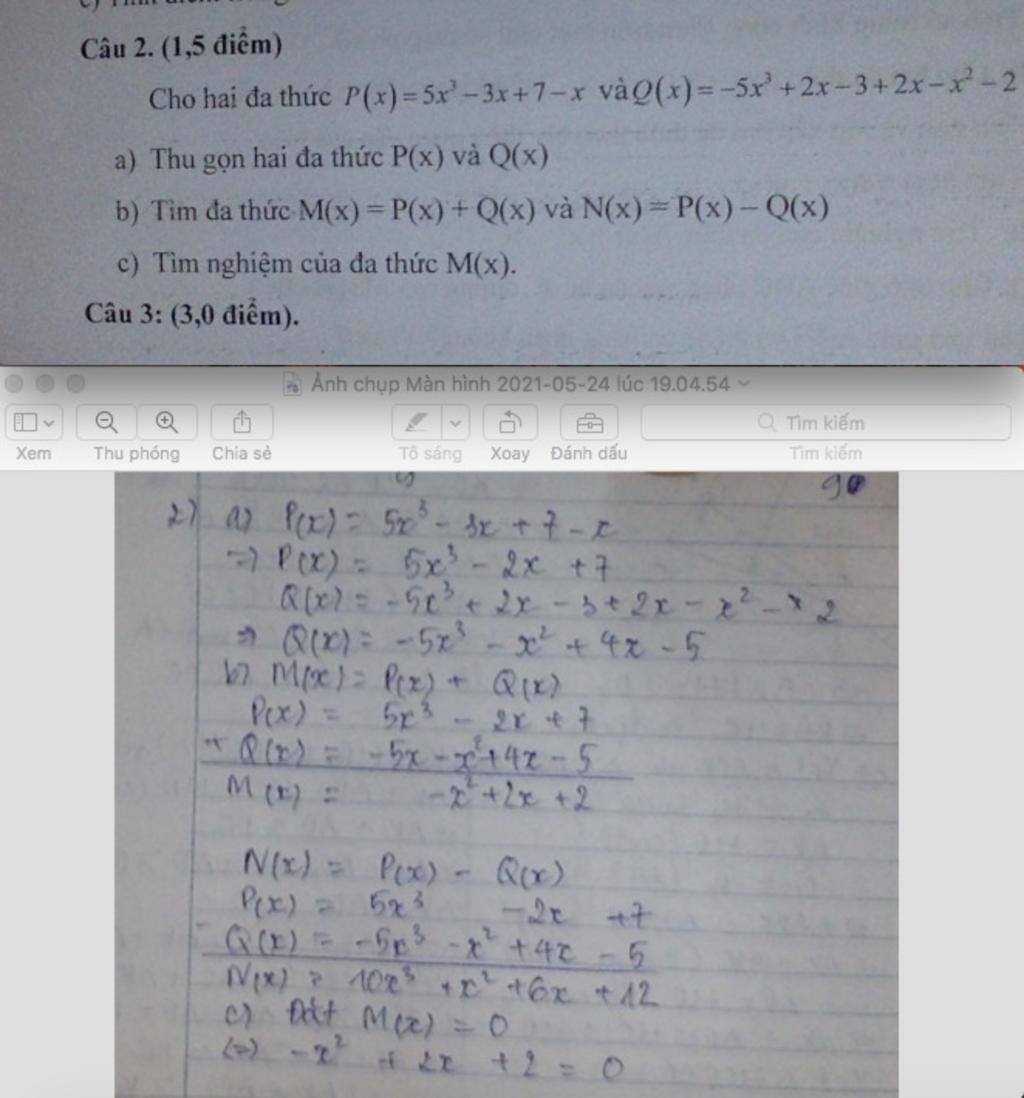 Câu 2. (1,5 điểm)
Cho hai đa thức P(x) = 5x³ − 3x + 7 − x và Q(x) = −5x³ + 2x − 3 + 2x − x² − 2
a) Thu gọn hai đa thức P(x) và Q(x)
b) Tìm đa thức M(x) = P(x) + Q(x) và N(x) = P(x) − Q(x)
c) Tìm nghiệm của đa thức M(x).
Câu 3: (3,0 điểm).
Ảnh chụp Màn hình 2021-05-24 lúc 19.04.54
Xem Thu phóng Chia sẻ Tô sáng Xoay Đánh dấu Tìm kiếm
Tìm kiếm
2) a) P(x) = 5x³ − 3x + 7 − x
=> P(x) = 5x³ − 2x + 7
Q(x) = −5x³ + 2x − 3 + 2x − x² − 2
=> Q(x) = −5x³ − x² + 4x − 5
b) M(x) = P(x) + Q(x)
P(x) = 5x³ − 2x + 7
+ Q(x) = −5x − x² + 4x − 5
M(x) = −x² + 2x + 2
N(x) = P(x) − Q(x)
P(x) = 5x³ −2x +7
− Q(x) = −5x³ − x² + 4x − 5
N(x) = 10x³ + x² + 6x + 12
c) Đặt M(x) = 0
(=) −x² + 2x + 2 = 0